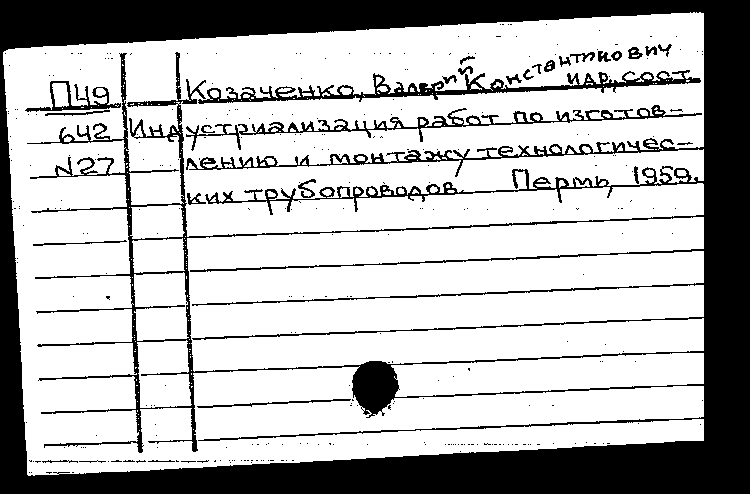 П49 Козаченко, Валерий Константинович
и др., сост.
642 Индустриализация работ по изготов-
N27 лению и монтажу технологичес-
ких трубопроводов. Пермь, 1959.